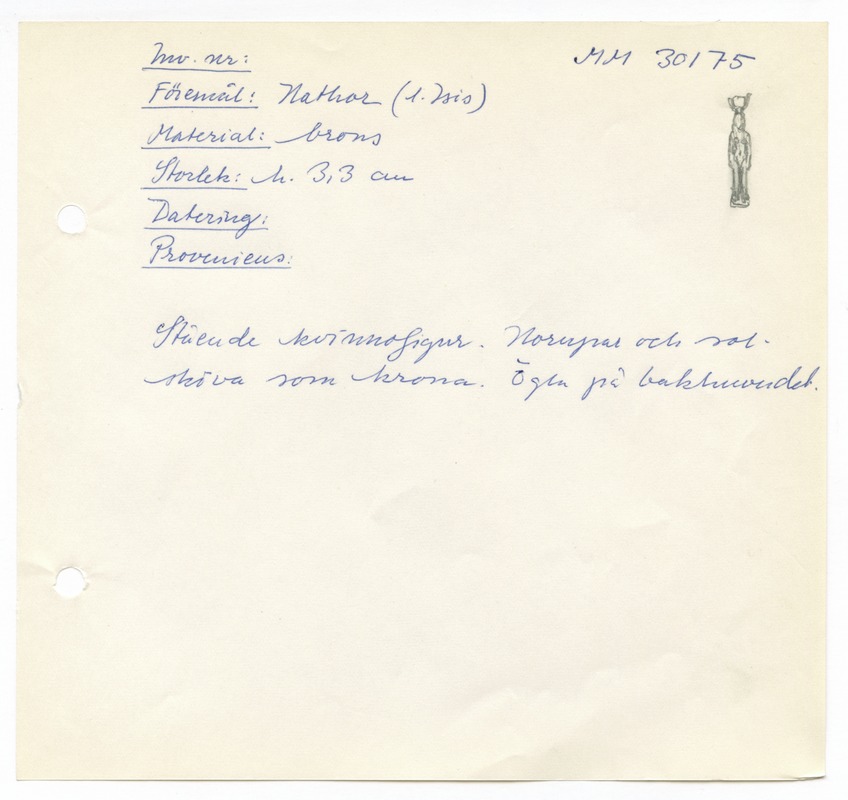 Inv. nr: MM 30175
Föremål: Hathor (l. Isis)
Material: brons
Storlek: h. 3,3 cm
Datering:
Proveniens:
Stående kvinnofigur. Hornpar och sol-
skiva som krona. Ögla på bakhuvudet.